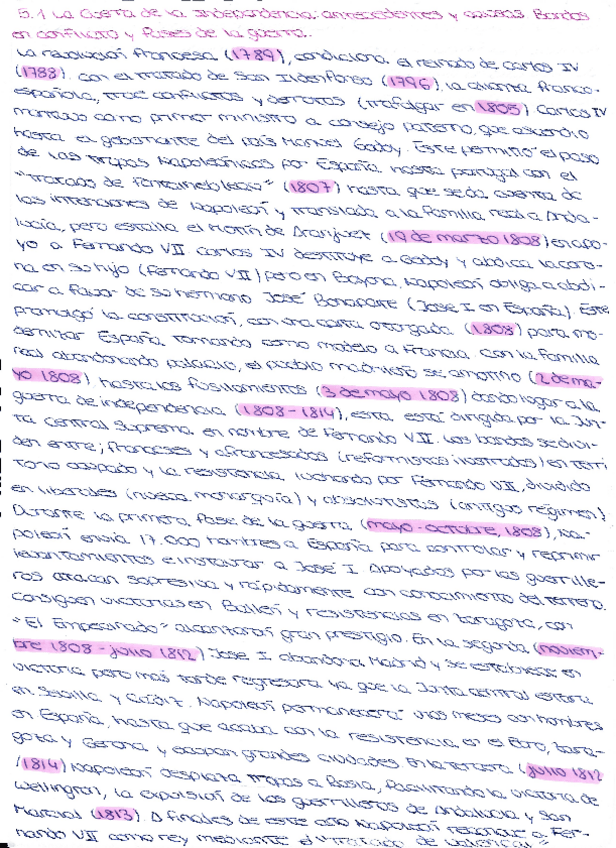 5.1 La Guerra de la Independencia: antecedentes y causas. Bandos
en conflicto y fases de la guerra.
La revolución francesa (1789), condiciona el reinado de Carlos IV
(1788). Con el tratado de San Ildefonso (1796), la alianza franco-
española, trae conflictos y derrotas (Trafalgar en 1805) Carlos IV
como primer ministro a consejo paterno, que ascendió
hasta el gobernante del país Manuel Godoy. Este permitió el paso
de las tropas Napoleónicas por España, hasta portugal con el
"Tratado de Fontainebleau" (1807) hasta que se da cuenta de
las intenciones de Napoleón y translada a la familia real a Anda-
lucía, pero estalla el Motín de Aranjuez (19 de marzo 1808) en apo-
yo a Fernando VII. Carlos IV destituye a Godoy y abdica la coro-
na en su hijo (Fernando VII) pero en Bayona, Napoleón obliga a abdi-
car a favor de su hermano José Bonaparte (José I en España). Este
promulgó la constitución, con una carta otorgada (1808) para mo-
dernizar España tomando como modelo a Francia. Con la familia
real abandonando palacio, el pueblo madrileño se amotinó (2 de ma-
yo 1808) hasta los fusilamientos (3 de mayo 1808) dando lugar a la
guerra de independencia (1808-1814), esta está dirigida por la Jun-
ta Central Suprema en nombre de Fernando VII. Los bandos se divi-
den entre; franceses y afrancesados (reformistas ilustrados) en terri
torio ocupado y la resistencia luchando por Fernando VII, dividido
en liberales (nueva monarquía) y absolutistas (antiguo régimen).
Durante la primera fase de la guerra (mayo-octubre, 1808), Na-
poleón envía 17.000 hombres a España para controlar y reprimir
levantamientos e instaurar a José I. Apoyados por las guerrille-
ros atacan sorpresiva y rápidamente con conocimiento del terreno.
Consiguen victorias en Bailén y resistencias en Zaragoza, con
"El Empecinado" alcanzaron gran prestigio. En la segunda (noviem-
bre 1808 - julio 1812) José I abandona Madrid y se establece en
Victoria pero más tarde regresará ya que la Junta central estará
en Sevilla y Cádiz. Napoleón permanecerá unos meses con hombres
en España, hasta que acaba con la resistencia en el Ebro, Zara-
goza y Gerona y ocupan grandes ciudades. En la tercera (julio 1812
/1814) Napoleón desplaza tropas a Rusia, facilitando la victoria de
Wellington, la expulsión de las guerrilleros de Andalucía y San
Marcial (1813). A finales de este año Napoleón reconoce a Fer-
nando VII como rey mediante el "Tratado de Valençai"